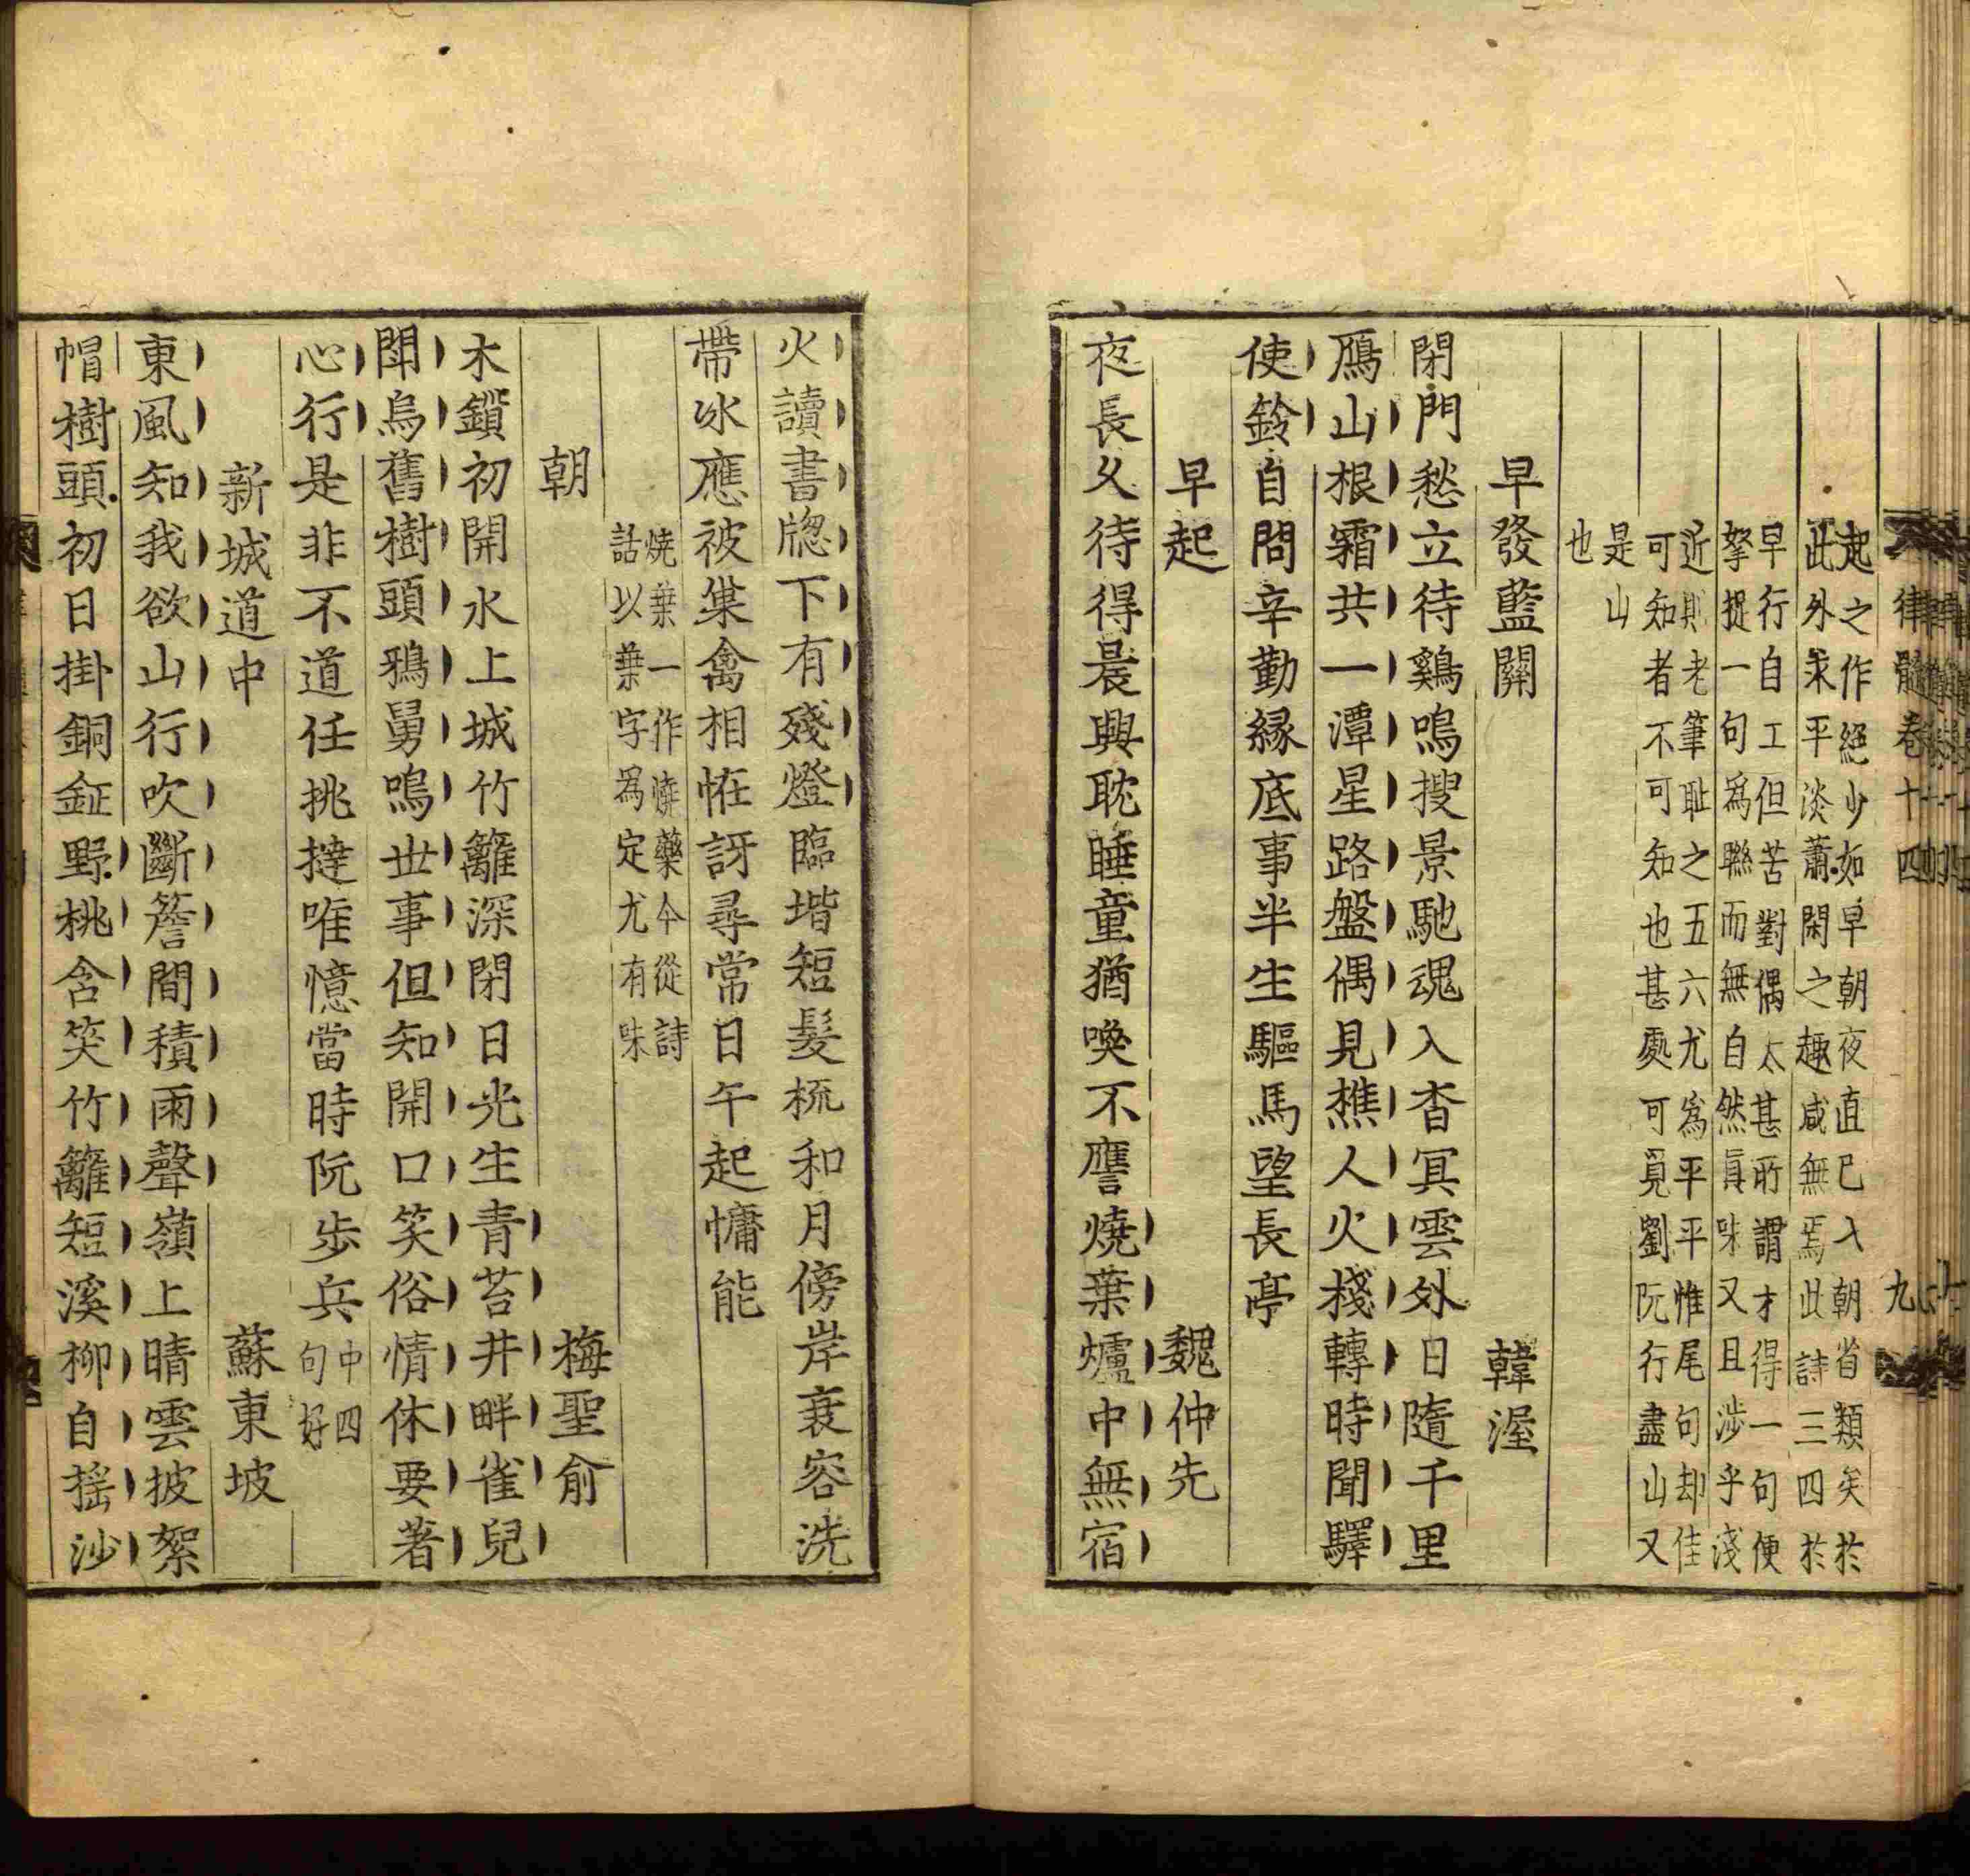 律髓卷十四 九
起之作絕少如早朝夜直已入朝省類矣於
此外求平淡蕭閑之趣咸無焉此詩三四於
早行自工但苦對偶太甚所謂才得一句便
拏捉一句爲聯而無自然眞味又且涉乎淺
近則老筆耻之五六尤爲平平惟尾句却佳
可知者不可知也甚處可覓劉阮行盡山又
是山
也
早發藍關 韓渥
閉門愁立待鷄鳴搜景馳魂入杳冥雲外日隨千里
鴈山根霜共一潭星路盤偶見樵人火棧轉時聞驛
使鈴自問辛勤緣底事半生驅馬望長亭
早起 魏仲先
夜長久待得晨興耽睡童猶喚不譍燒葉爐中無宿
火讀書牕下有殘燈臨堦短髮梳和月傍岸衰容洗
帶冰應被巢禽相恠訝尋常日午起慵能
燒葉一作燒藥今從詩
話以葉字爲定尤有味
朝 梅聖俞
木鎖初開水上城竹籬深閉日光生青苔井畔雀兒
鬬烏舊樹頭鴉舅鳴世事但知開口笑俗情休要著
心行是非不道任挑撻唯憶當時阮步兵
中四
句好
新城道中 蘇東坡
東風知我欲山行吹斷簷間積雨聲嶺上晴雲披絮
帽樹頭初日掛銅鉦野桃含笑竹籬短溪柳自搖沙